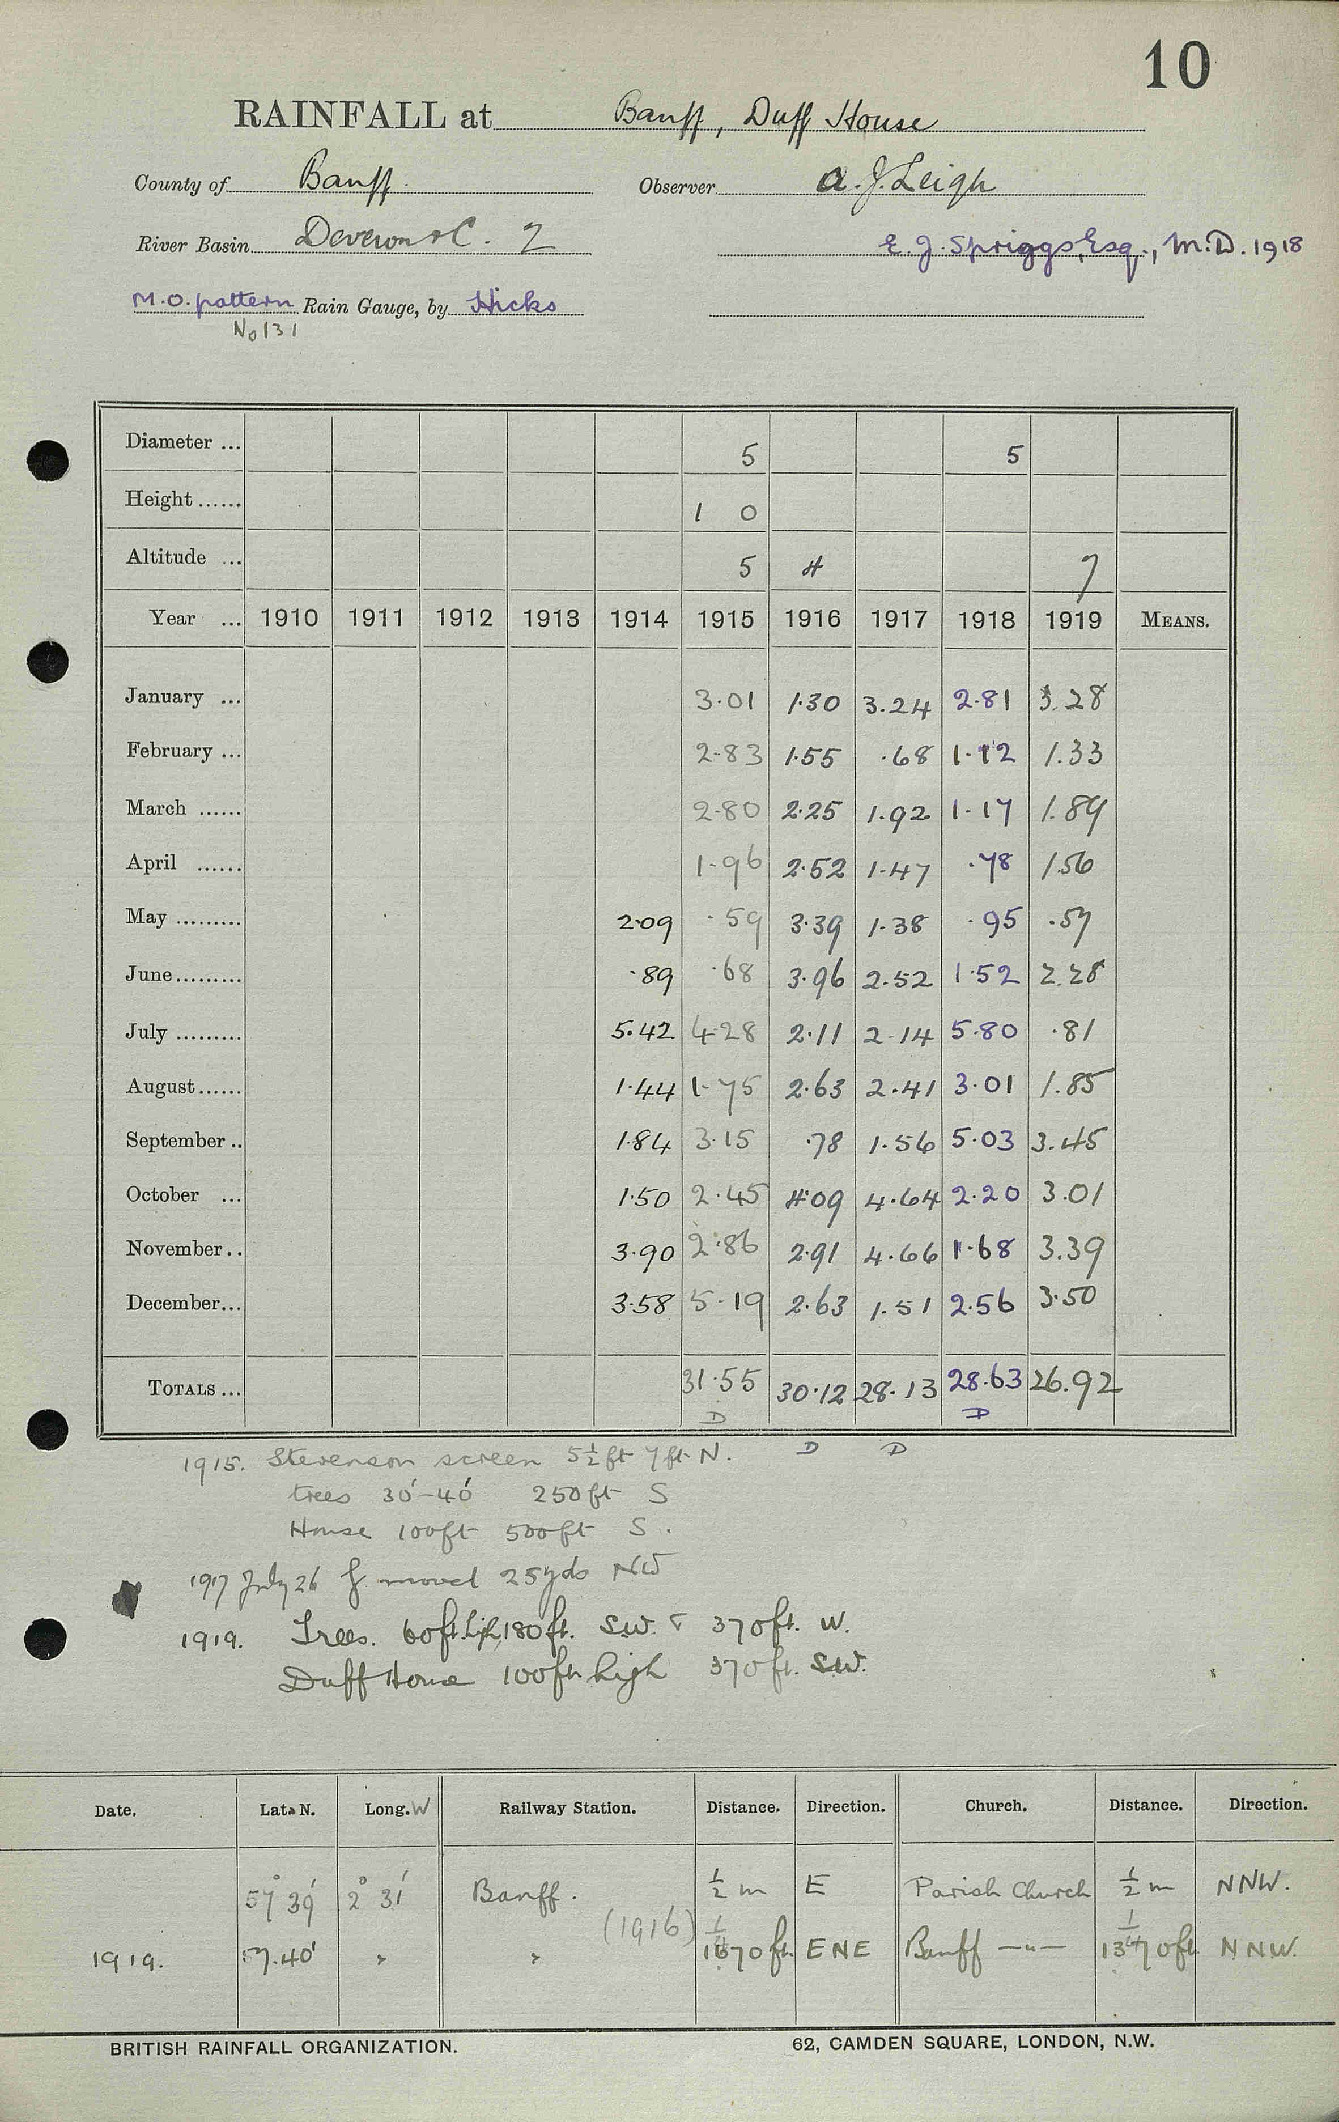 10
RAINFALL at Banff, Duff House
County of Banff. Observer A. J. Leigh
River Basin Deveron &C. 2 E. J. Spriggs, Esq., M.D. 1918
M.O. pattern Rain Gauge, by Hicks
No 131
Diameter ... 5 5
Height ...... 1 0
Altitude ... 5 4 7
Year ... 1910 1911 1912 1913 1914 1915 1916 1917 1918 1919 MEANS.
January ... 3.01 1.30 3.24 2.81 3.28
February ... 2.83 1.55 .68 1.12 1.33
March ...... 2.80 2.25 1.92 1.17 1.89
April ...... 1.96 2.52 1.47 .78 1.56
May ......... 2.09 .59 3.39 1.38 .95 .57
June ......... .89 .68 3.96 2.52 1.52 2.28
July ......... 5.42 4.28 2.11 2.14 5.80 .81
August ...... 1.44 1.75 2.63 2.41 3.01 1.85
September .. 1.84 3.15 .78 1.56 5.03 3.45
October ... 1.50 2.45 4.09 4.64 2.20 3.01
November .. 3.90 2.86 2.91 4.66 1.68 3.39
December ... 3.58 5.19 2.63 1.51 2.56 3.50
TOTALS ... 31.55 30.12 28.13 28.63 26.92
D D D D
1915. Stevenson screen 5½ft 7ft N.
trees 30'-40' 250ft S
House 100ft 500ft S.
1917 July 26 g. moved 25yds NW
1919. Trees. 60ft. high 180ft. SW. & 370ft. W.
Duff House 100ft high 370ft. SW.
Date. Lat. N. Long. W Railway Station. Distance. Direction. Church. Distance. Direction.
57° 39' 2° 31' Banff. ½ m E Parish Church ½ m NNW.
(1916) ¼
1919. 57.40' " " 1670ft. ENE Banff —"— 1370ft NNW.
BRITISH RAINFALL ORGANIZATION. 62, CAMDEN SQUARE, LONDON, N.W.